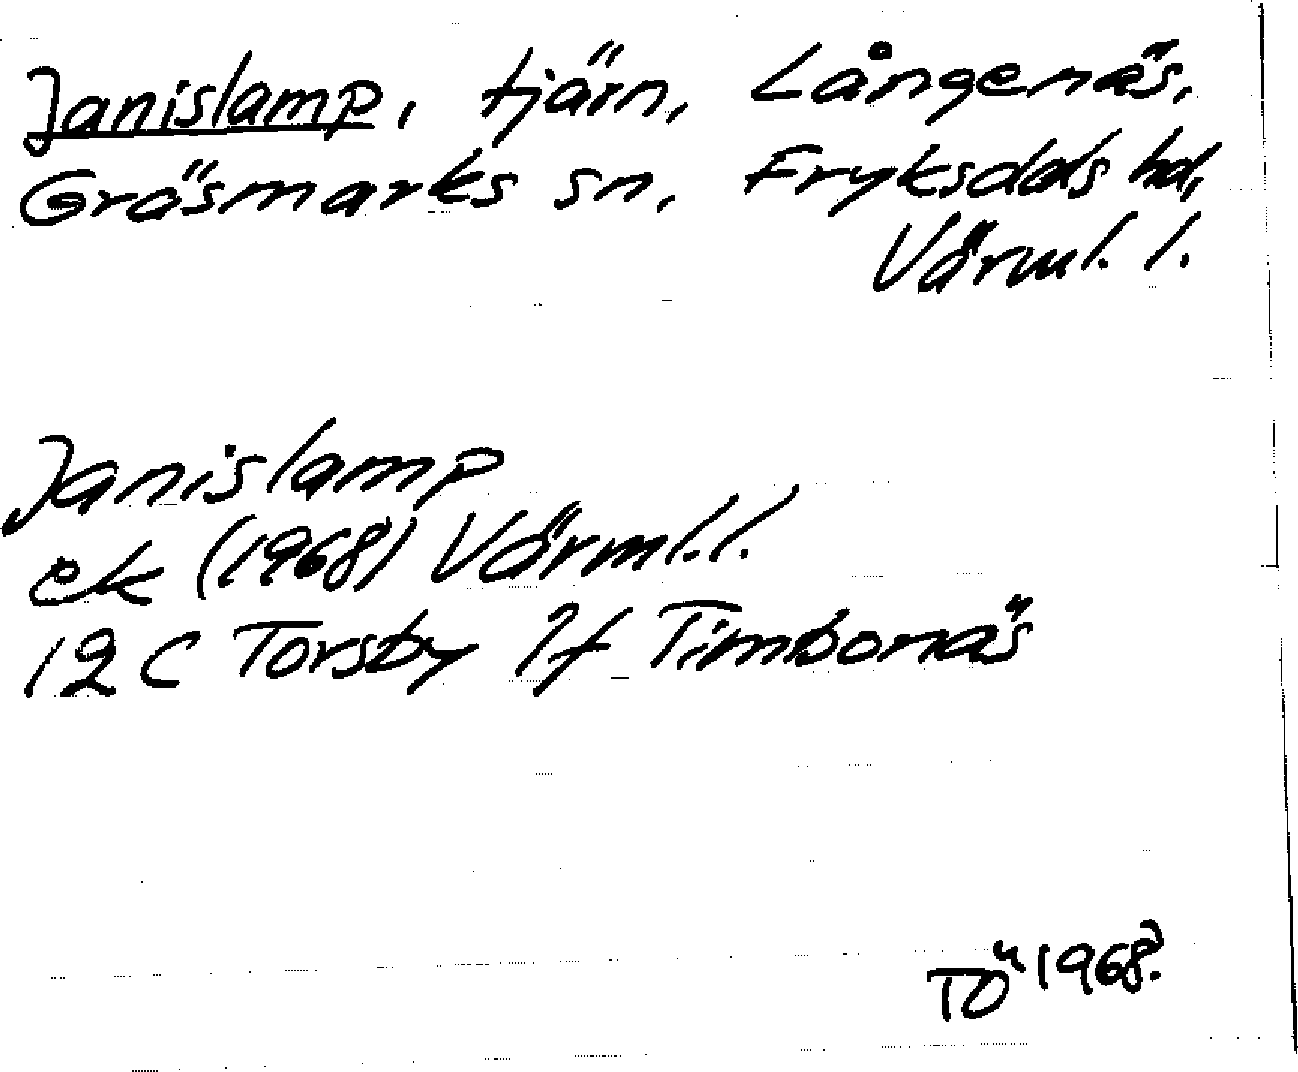 Janislamp, tjärn, Långenäs,
Gräsmarks sn, Fryksdals hd,
Värml. l.
Janislamp
ek (1968) Värml. l.
12 C Torsby 1f Timbonäs
TÖ 1968.